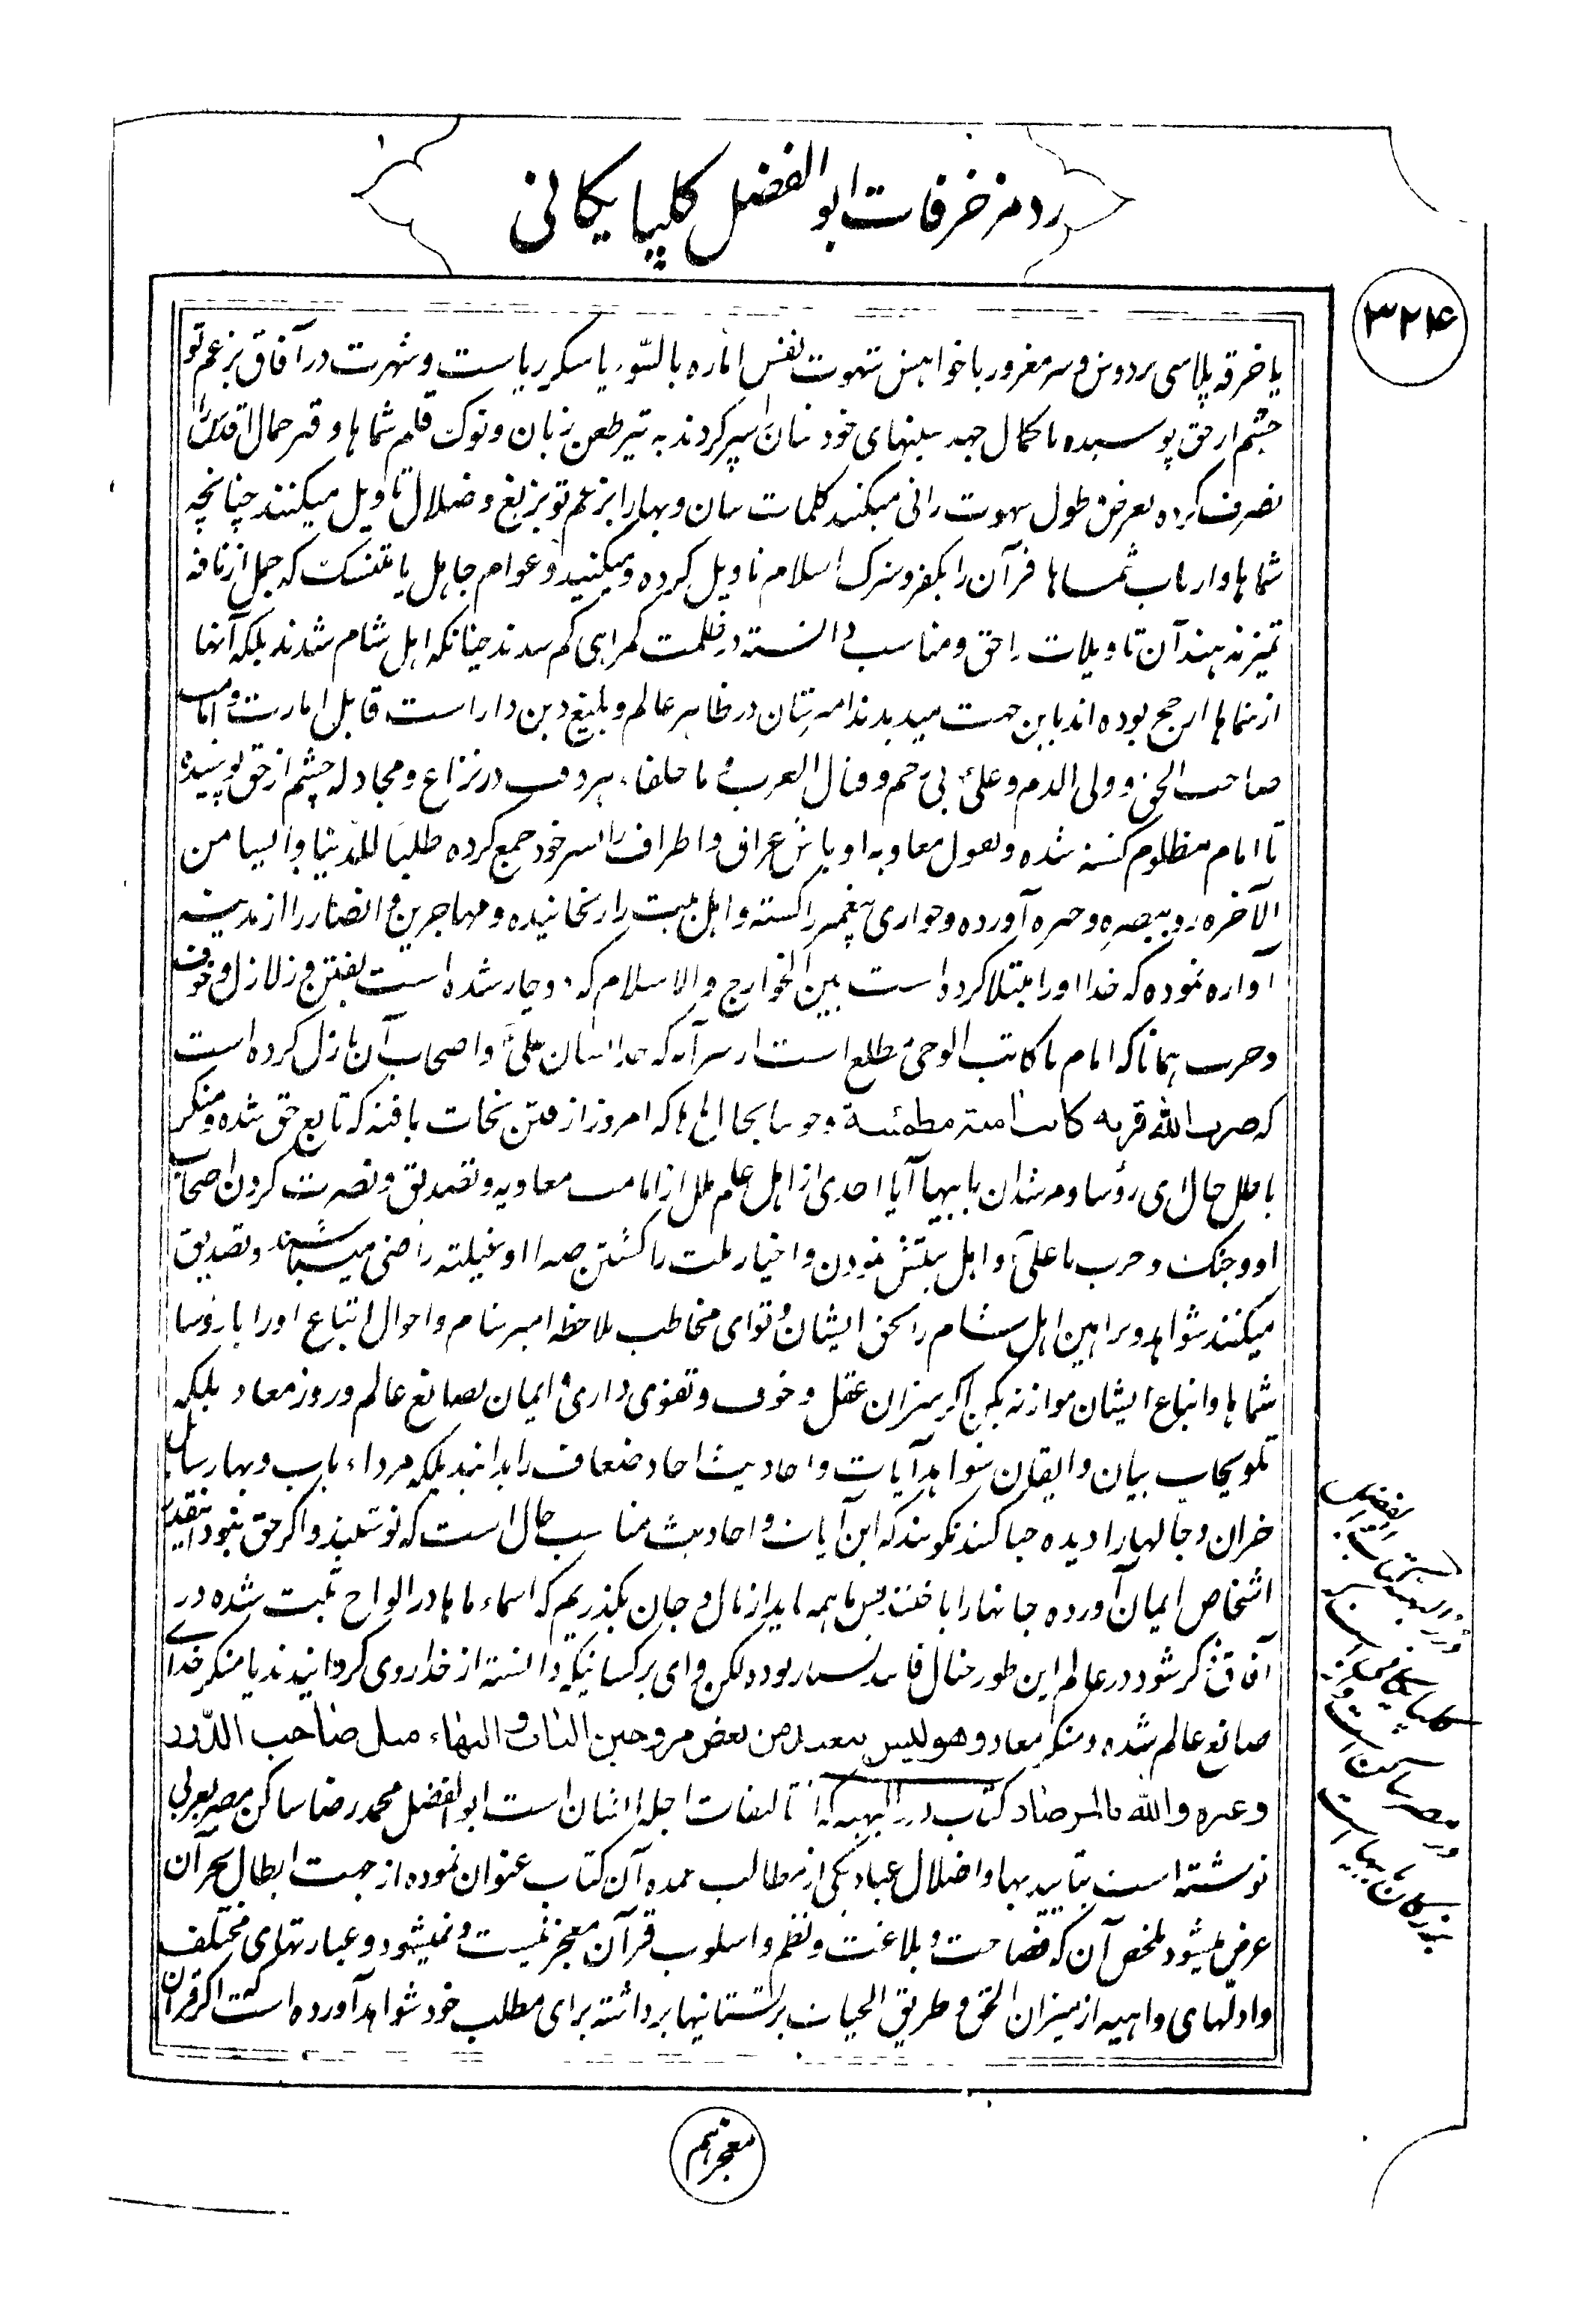 رد مزخرفات ابوالفضل کلپایکانی
۳۲۴
یا خرقه پلاسی بر دوش و سر مغرور با خواهش شهوت نفس اماره بالسوء یا سکر ریاست و شهرت در آفاق بزعم تو
چشم از حق پوسیده با کمال جهد سینهای خودشان را سپر کردند به تیر طعن زبان و نوک قلم شماها و قبر جمال اقدس را
تصرف کرده بعرض طول شهوت رانی میکنند کلمات بیان و بها را بزعم تو بزیغ و ضلال تاویل میکنند چنانچه
شماها و ارباب شماها قرآن را بکفر و شرک اسلام تاویل کرده و میکنید و عوام جاهل یا متنسک که جمل از ناقه
تمیز ندهند آن تاویلات را حق و مناسب دانسته در ظلمت کمراهی کم شدند چنانکه اهل شام شدند بلکه آنها
از شماها ارجح بوده اند باین جهت میدیدند امیرشان در ظاهر عالم و بلیغ دین دار است قابل امارت و امامت
صاحب الحق و ولی الدم و علی بی رحم و قتال العرب با خلفاء هر وقت در نزاع و مجادله چشم از حق پوشیده
تا امام مظلوم کشته شده و بقول معاویه اوباش عراق و اطراف را بسر خود جمع کرده طلبا للدنیا و ایسا من
الآخره رو ببصره و حیره آورده و حواری پیغمبر را کشته و اهل بیت را رنجانیده و مهاجرین و انصار را از مدینه
آواره نموده که خدا او را مبتلا کرده است بین الخوارج والاسلام که دوچار شده است بفتن و زلازل و خوف
و حرب همانا که امام ما کاتب الوحی مطلع است از سر آیه که خدا بشأن علی و اصحاب آن نازل کرده است
که ضرب الله قریه کانت آمنة مطمئنة و خوشا بحال ماها که امروز از فتن نجات یافته که تابع حق شده و منکر
باطل حال ای رؤسا و مرشدان بابیها آیا احدی از اهل علم ملل از امامت معاویه و تصدیق و نصرت کردن اصحاب
او و جنک و حرب با علی و اهل بیتش نمودن و اخیار ملت را کشتن صدا او غیلته راضی میباشند و تصدیق
میکنند شواهد و براهین اهل شام را بحق ایشان و تو ای مخاطب ملاحظه امیر شام و احوال اتباع او را با رؤسا
شماها و اتباع ایشان موازنه بکن اکر میزان عقل و خوف و تقوی داری و ایمان بصانع عالم و روز معاد بلکه
تلویحات بیان و ایقان شواهد آیات و احادیث احاد ضعاف را بدانید بلکه فرداء باب و بها رسایل
خران و جالها را دیده حیا کنند نکویند که این آیات و احادیث مناسب حال است که نوشتیند و اکر حق نبود اینقدر
اشخاص ایمان آورده جانها را باختند پس ما همه باید از مال و جان بکذریم که اسماء ماها در الواح ثبت شده در
آفاق ذکر شود در عالم این طور خیال فاسد بسیار بوده لکن وای بر کسانیکه دانسته از خدا روی کردانیدند یا منکر خدای
صانع عالم شده و منکر معاد و هو لیس ببعید من بعض مروجین الباب و البهاء مثل صاحب الدرر
و غیره و الله بالمرصاد کتاب درر البهیه که از تالیفات اجله ایشان است ابوالفضل محمد رضا ساکن مصر بعربی
نوشته است بتایید بها و اضلال عباد یکی از مطالب عمده آن کتاب عنوان نموده از جهت ابطال بحر آن
عرض میشود ملخص آن که فصاحت و بلاغت و نظم و اسلوب قرآن معجز نیست و نمیشود و عبارتهای مختلف
و ادلهای واهیه از میزان الحق و طریق الحیات پرتستانیها برداشته برای مطلب خود شواهد آورده است که اکر قرآن
ابوالفضل
کلپایکانی
در مصر ساکن است
بزرکان بابیه است
معجز هم